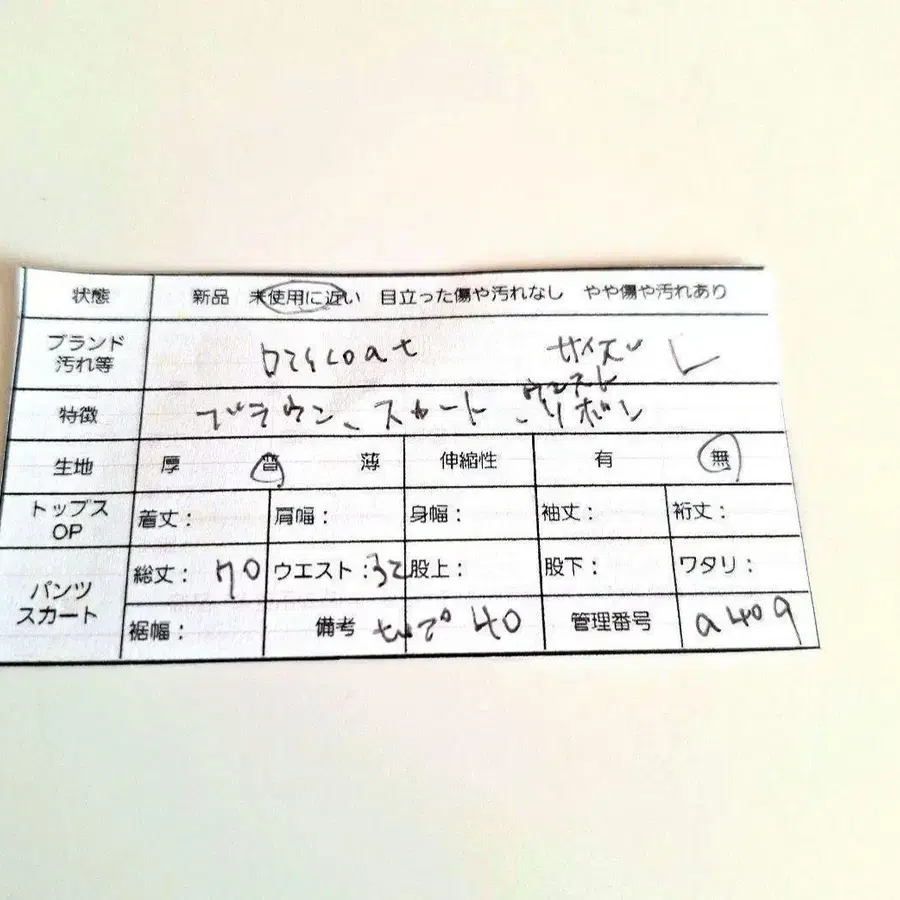 状態 新品 未使用に近い 目立った傷や汚れなし やや傷や汚れあり
ブランド
汚れ等 サイズ L
特徴 ブラウン、スカート、ウエスト
リボン
生地 厚 普 薄 伸縮性 有 無
トップス
OP 着丈: 肩幅: 身幅: 袖丈: 裄丈:
パンツ
スカート 総丈: 70 ウエスト: 32 股上: 股下: ワタリ:
裾幅: 備考 ヒップ 40 管理番号 a409